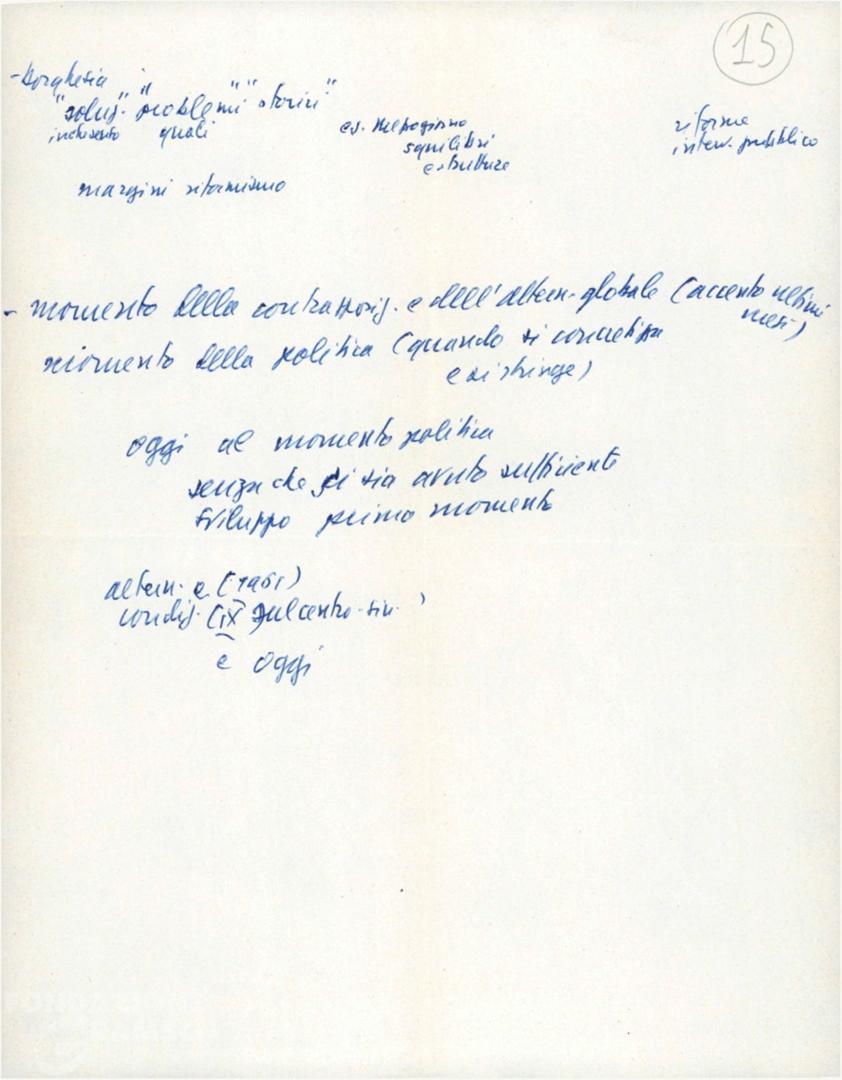 15
- borghesia
"soluz." "problemi" "storici"
in che senso quali
es. Mezzogiorno
squilibri
strutture
riforme
interv. pubblico
margini riformismo
- momento della contrapposiz. e dell'altern. globale (accento ultimi
mesi)
momento della politica (quando si concretizza
e si stringe)
oggi al momento politica
senza che si sia avuto sufficiente
sviluppo primo momento
altern. e (1961)
condiz. (IX) sul centro-sin.
e oggi